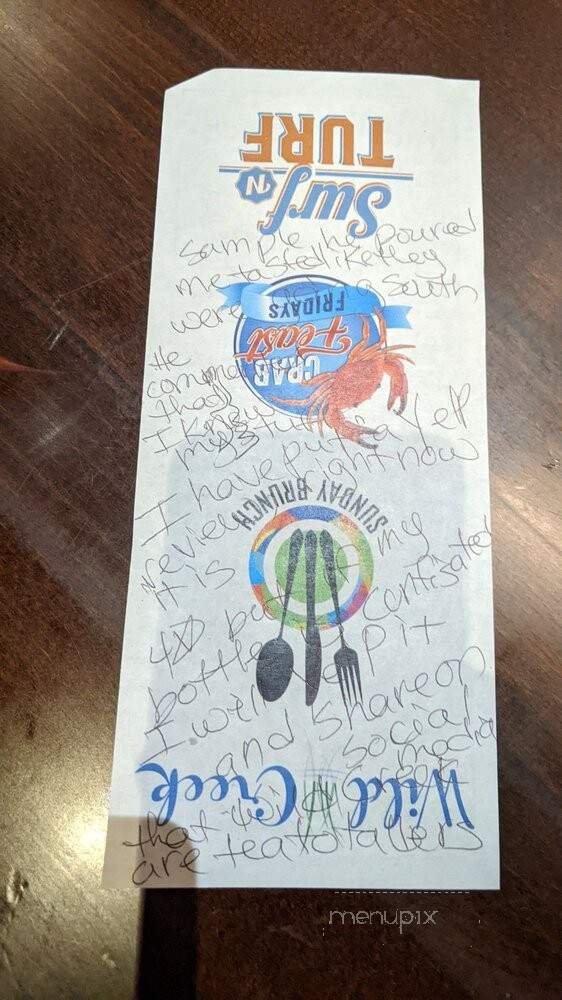 Surf N
TURF
CRAB
Feast
FRIDAYS
SUNDAY BRUNCH
Wild Creek
sample he poured
me tasted like they
were in a South
He
comme
that
I knew
my stuff
I have put a Yelp
review right now
it is
4☆ but if my
bottle confisated
I will yelp it
and share on
social
media
that
are teatotallers
menupix